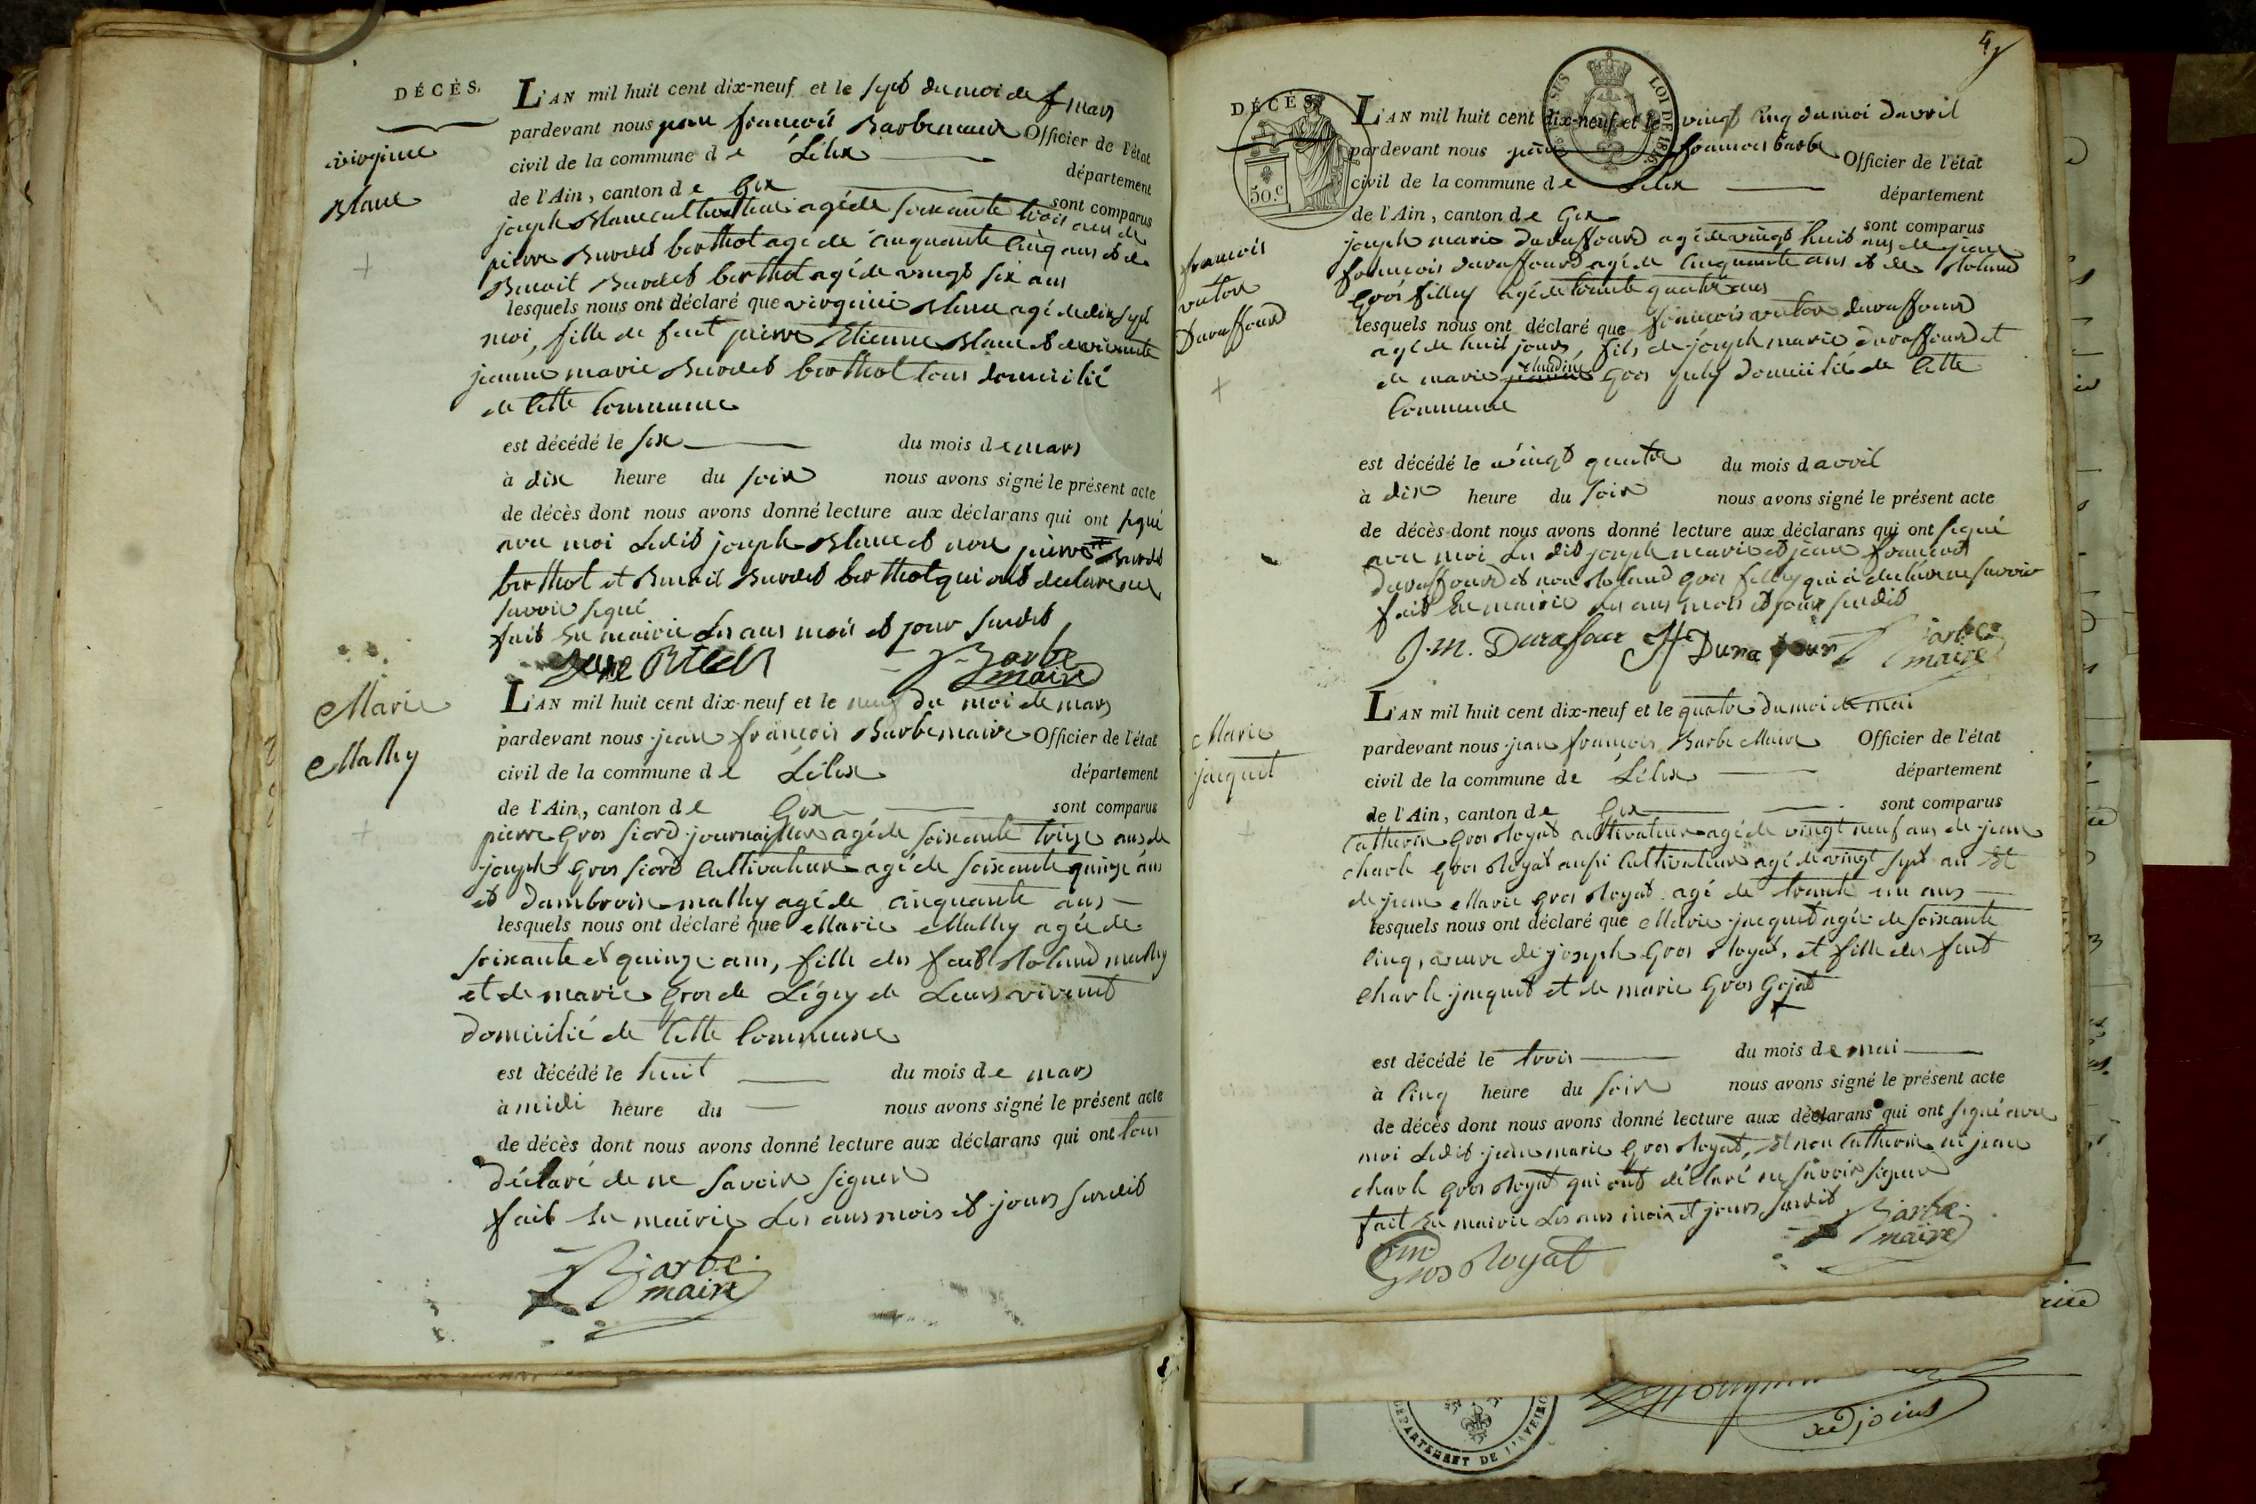 DÉCÈS.
virginie
Blanc
L'AN mil huit cent dix-neuf et le sept du moi de mars
pardevant nous jean françois Barbe maire Officier de l'état
civil de la commune de Lélex département
de l'Ain, canton de Gex sont comparus
joseph Blanc cultivateur agé de soixante trois ans de
pierre Burdet berthot agé de cinquante cinq ans et de
Benoit Burdet berthot agé de vingt six ans
lesquels nous ont déclaré que virginie Blanc agé de dix sept
moi, fille de feut pierre Etienne Blanc et de vivante
jeanne marie Burdet berthot tous domicilié
de cette commune
est décédé le six du mois de mars
à dix heure du soir nous avons signé le présent acte
de décès dont nous avons donné lecture aux déclarans qui ont signé
avec moi Ledit joseph Blanc et non pierre Burdet
berthot et Benoit Burdet berthot qui ont declare ne
savoir signé
fait en mairie Les ans mois et jour susdit
Barbe
maire
Marie
Mathy
L'AN mil huit cent dix-neuf et le neuf du moi de mars
pardevant nous jean françois Barbe maire Officier de l'état
civil de la commune de Lélex département
de l'Ain, canton de Gex sont comparus
pierre Gros fiord journaillier agé de soixante treize ans de
joseph Gros fiord Cultivateur agé de soixante quinze ans
et dambroise mathy agé de cinquante ans
lesquels nous ont déclaré que Marie Mathy agée de
soixante et quinze ans, fille des feut Roland mathy
et de marie Gros de Légey de Leurs vivent
domicilié de cette Commune
est décédé le huit du mois de mars
à midi heure du nous avons signé le présent acte
de décès dont nous avons donné lecture aux déclarans qui ont tous
déclaré de ne savoir signer
fait en mairie Les ans mois et jours susdit
Barbe
maire
4
DÉCÈS
50.c
LOI DE 1816
françois
victor
Duraffourd
L'AN mil huit cent dix-neuf et le vingt cinq du moi d'avril
pardevant nous jean françois barbe Officier de l'état
civil de la commune de Lélex département
de l'Ain, canton de Gex sont comparus
joseph marie duraffourd agé de vingt huit ans de jean
françois duraffourd agé de cinquante ans et de Roland
Gros filley agé de trente quatre ans
lesquels nous ont déclaré que françois victor duraffourd
agé de huit jours fils de joseph marie duraffourd et
de marie claudine Gros domicilié de cette
Commune
est décédé le vingt quatre du mois d'avril
à dix heure du soir nous avons signé le présent acte
de décès dont nous avons donné lecture aux déclarans qui ont signé
avec moi Les dit joseph marie et jean françois
Duraffourd et non Roland Gros filley qui à declare ne savoir
fait en mairie Les ans mois et jour susdit
J.m. Durafour Durafour Barbe
maire
Marie
jacquet
L'AN mil huit cent dix-neuf et le quatre du moi de mai
pardevant nous jean françois Barbe Maire Officier de l'état
civil de la commune de Lélex département
de l'Ain, canton de Gex sont comparus
Catherin Gros Royat cultivateur agé de vingt neuf ans de jean
charle Gros Royat aussi Cultivateur agé de vingt sept an Et
de jean Marie Gros Royat agé de trante un ans
lesquels nous ont déclaré que Marie jacquet agée de soixante
cinq, veuve de joseph Gros Royat, et fille des feut
charle jacquet et de marie Gros Gojat
est décédé le trois du mois de mai
à cinq heure du soir nous avons signé le présent acte
de décès dont nous avons donné lecture aux déclarans qui ont signé avec
moi Ledit jean marie Gros Royat, Et non Catherin ni jean
charle Gros Royat qui ont déclaré ne savoir signer
fait en mairie Les ans mois et jours susdit
Barbe
maire
jm
Gros Royat
DÉPARTEMENT DE L'AVEIRON
adjoint